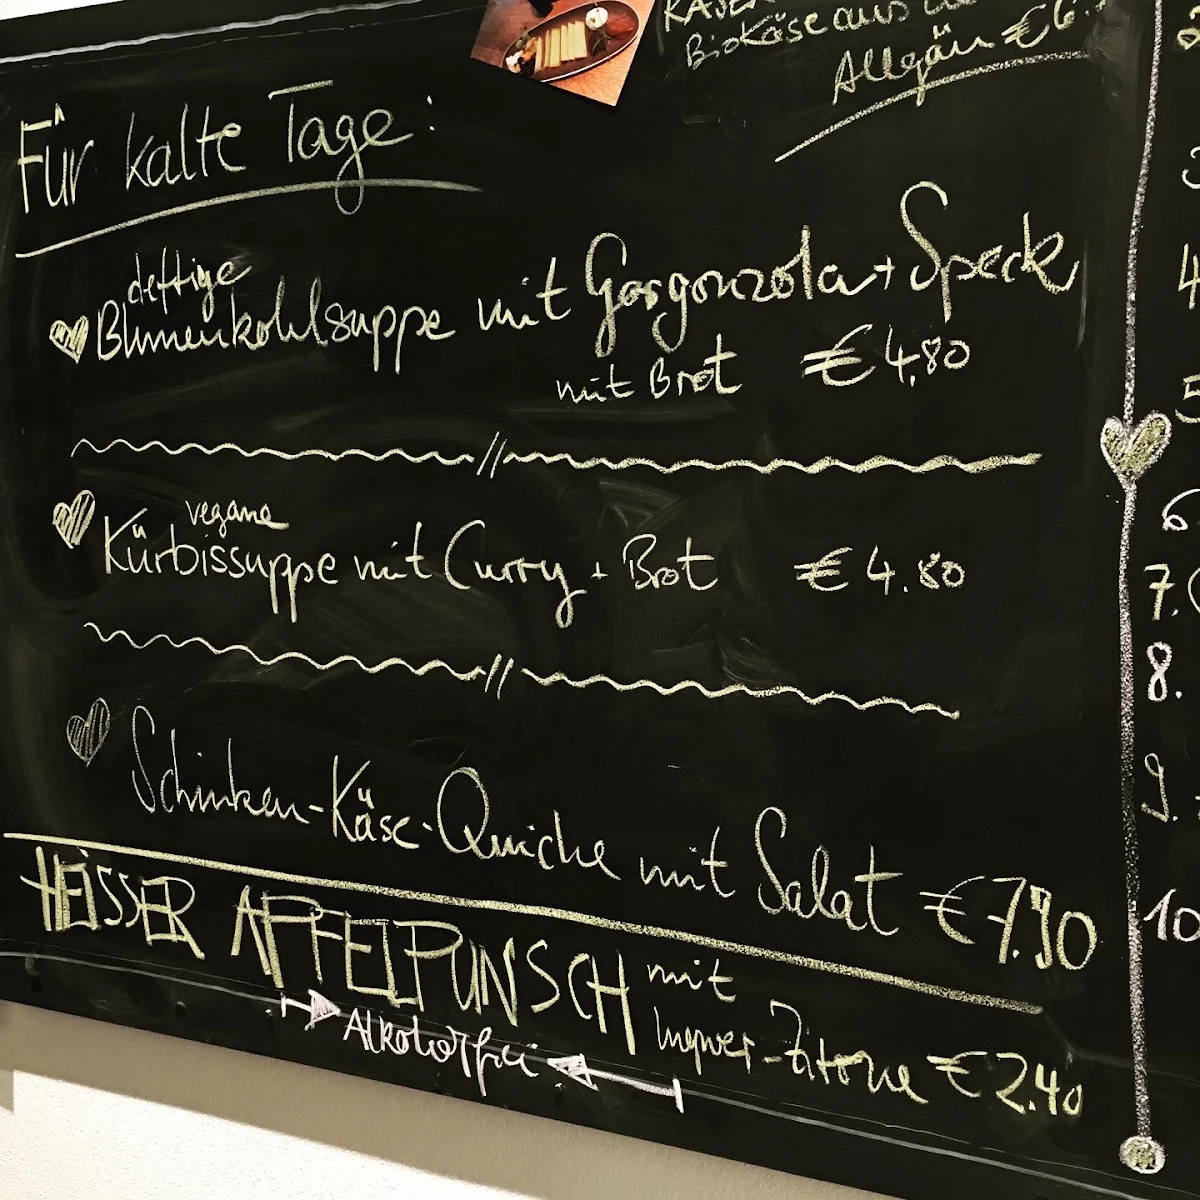 Biokäse aus
Allgäu €6.
Für kalte Tage:
deftige
Blumenkohlsuppe mit Gorgonzola + Speck
mit Brot € 4.80
vegane
Kürbissuppe mit Curry + Brot € 4.80
Schinken-Käse-Quiche mit Salat € 7.90
HEISSER APFELPUNSCH mit
Ingwer-Zitrone € 2.40
Alkoholfrei
4
5
6
7.
8.
9.
10